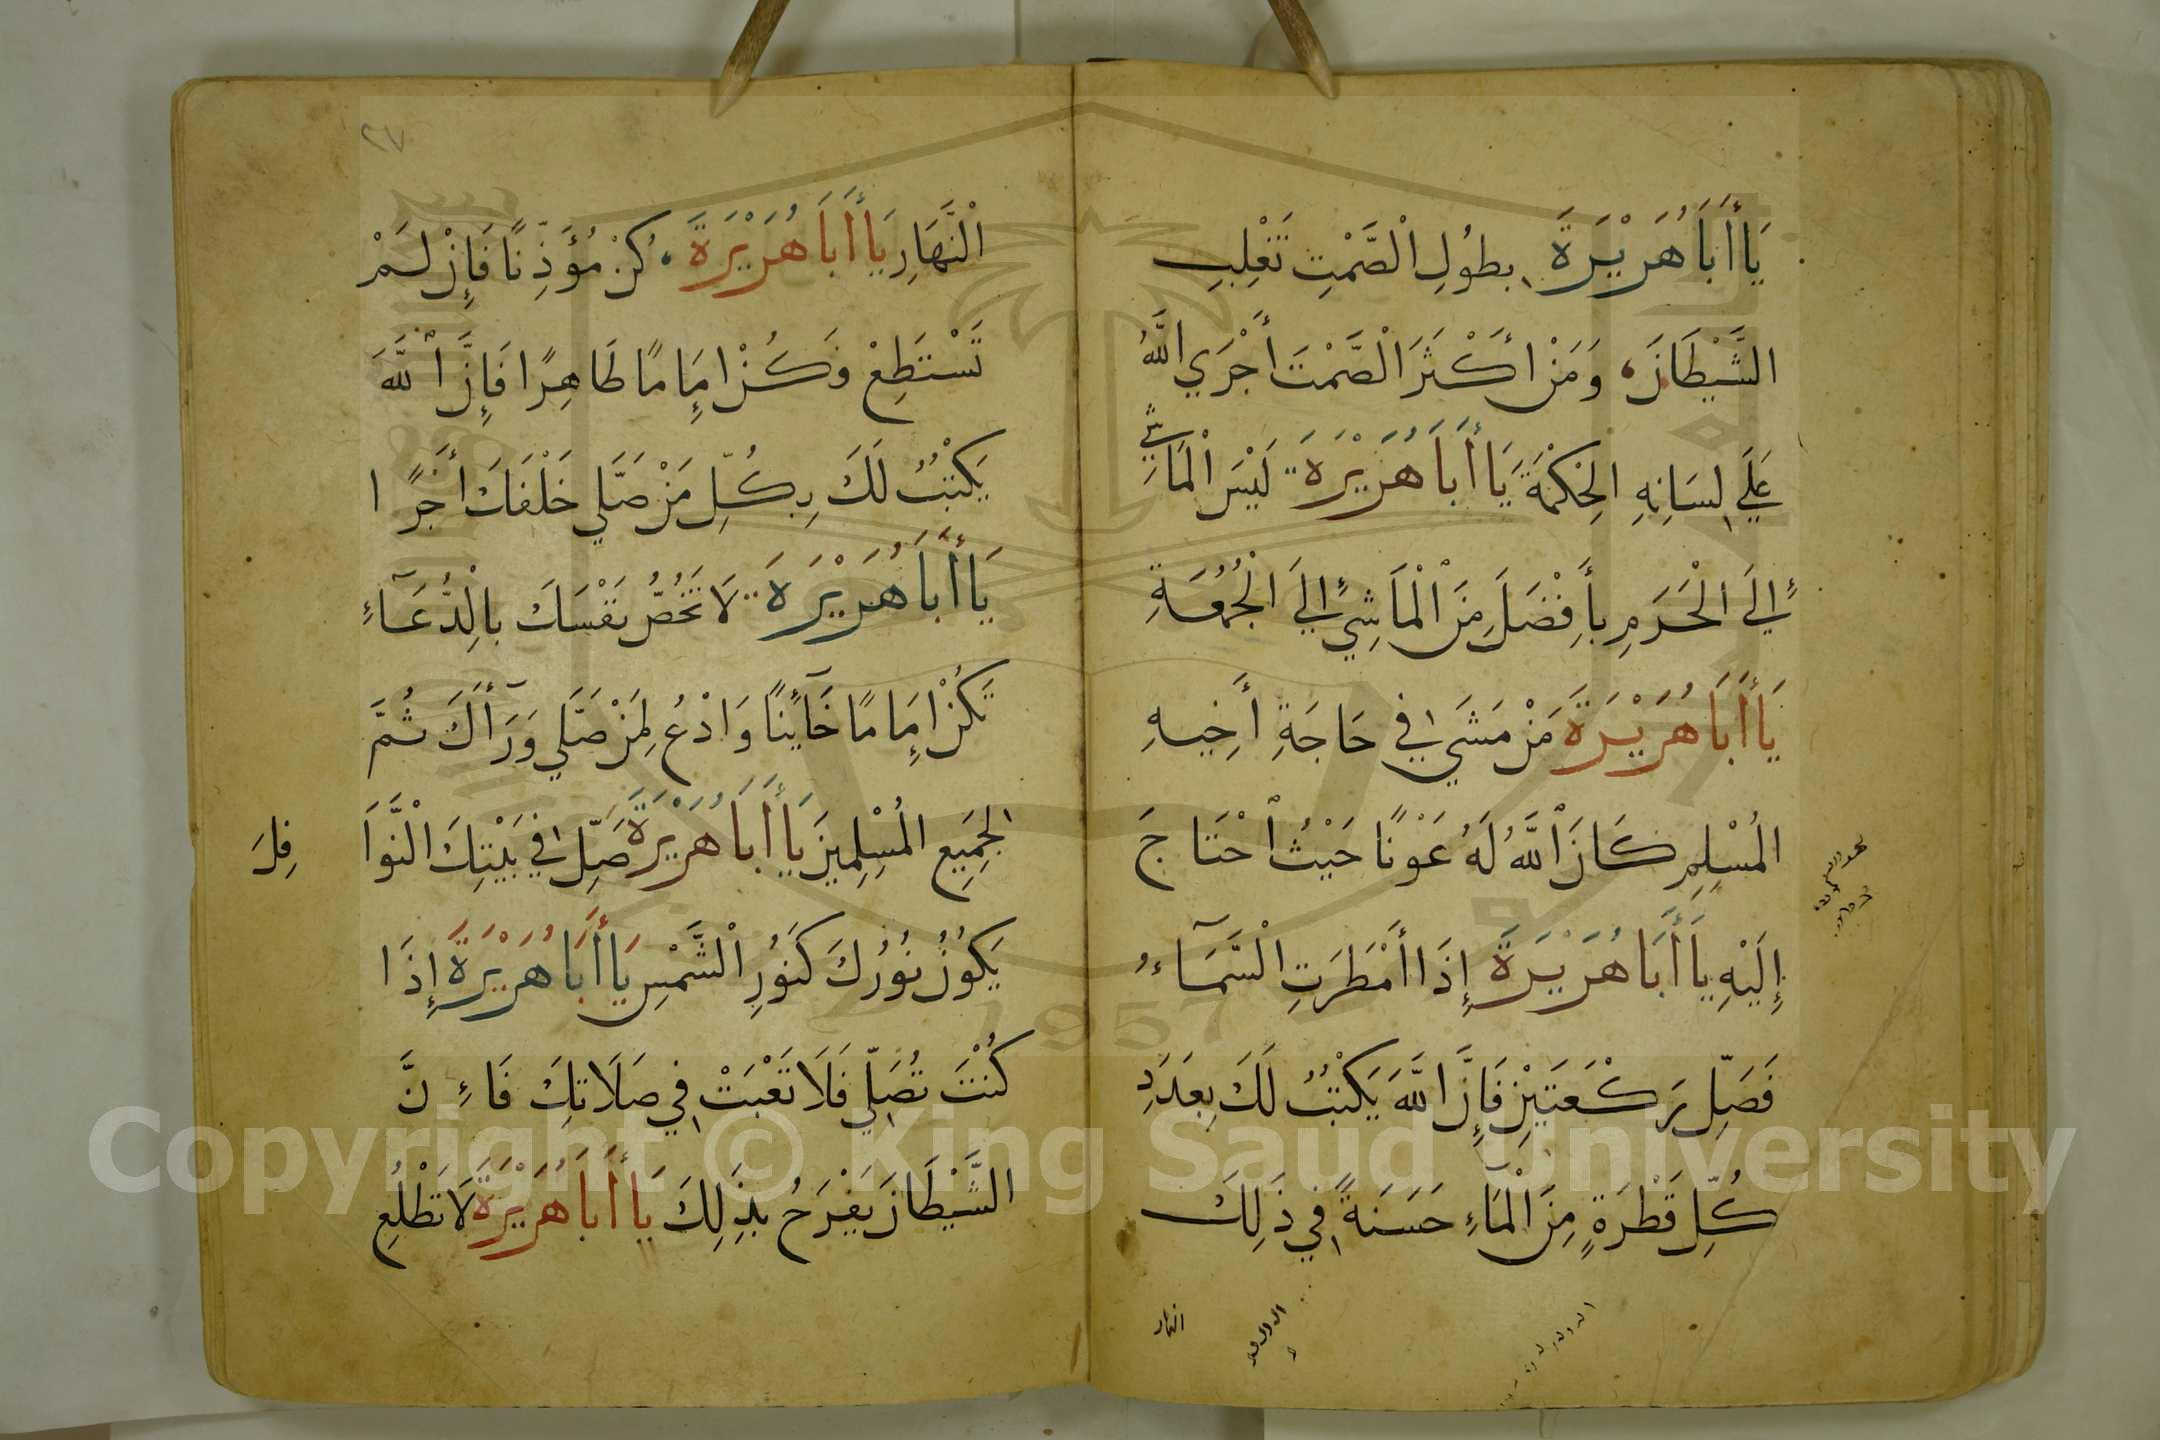 يَا أَبَا هُرَيْرَةَ بِطُولِ الْصَّمْتِ تَغْلِبِ
الشَّيْطَانَ وَمَنْ أَكْثَرَ الْصَّمْتَ أَجْرَي اللَّهُ
عَلَي لِسَانِهِ الحِكْمَةَ يَا أَبَا هُرَيْرَةَ لَيْسَ الْمَاشِي
إِلَى الْحَرَمِ بِأَفْضَلَ مِنَ الْمَاشِي إِلَي الْجُمُعَةِ
يَا أَبَا هُرَيْرَةَ مَنْ مَشَي فِي حَاجَةِ أَخِيهِ
المُسْلِمِ كَانَ اللَّهُ لَهُ عَوْنًا حَيْثُ احْتَاجَ
إِلَيْهِ يَا أَبَا هُرَيْرَةَ إِذَا أَمْطَرَتِ الْسَّمَآءُ
فَصَلِّ رَكْعَتَيْنِ فَإِنَّ اللَّهَ يَكْتُبُ لَكَ بِعَدَدِ
كُلِّ قَطْرَةٍ مِنَ الْمَآءِ حَسَنَةً فِي ذَلِكَ
النهار
٢٧
الْنَّهَارِ يَا أَبَا هُرَيْرَةَ كُنْ مُؤَذِّنًا فَإِنْ لَمْ
تَسْتَطِعْ فَكُنْ إِمَامًا طَاهِرًا فَإِنَّ اللَّهَ
يَكْتُبُ لَكَ بِكُلِّ مَنْ صَلَّي خَلْفَكَ أَجْرًا
يَا أَبَا هُرَيْرَةَ لَا تَخُصُّ نَفْسَكَ بِالْدُّعَآءِ
تَكُنْ إِمَامًا خَآئِنًا وَادْعُ لِمَنْ صَلَّي وَرَآأَكَ ثُمَّ
الجَمِيعِ المُسْلِمِينَ يَا أَبَا هُرَيْرَةَ صَلِّ فِي بَيْتِكَ الْنَّوَا
فِلَ
يَكُونُ نُورُكَ كَنُورِ الْشَّمْسِ يَا أَبَا هُرَيْرَةَ إِذَا
كُنْتَ تُصَلِّي فَلَا تَعْبَتْ فِي صَلَاتِكَ فَاءِنَّ
الشَّيْطَانَ يَفْرَحُ بِذَلِكَ يَا أَبَا هُرَيْرَةَ لَا تَطْلُعِ
1957
Copyright © King Saud University